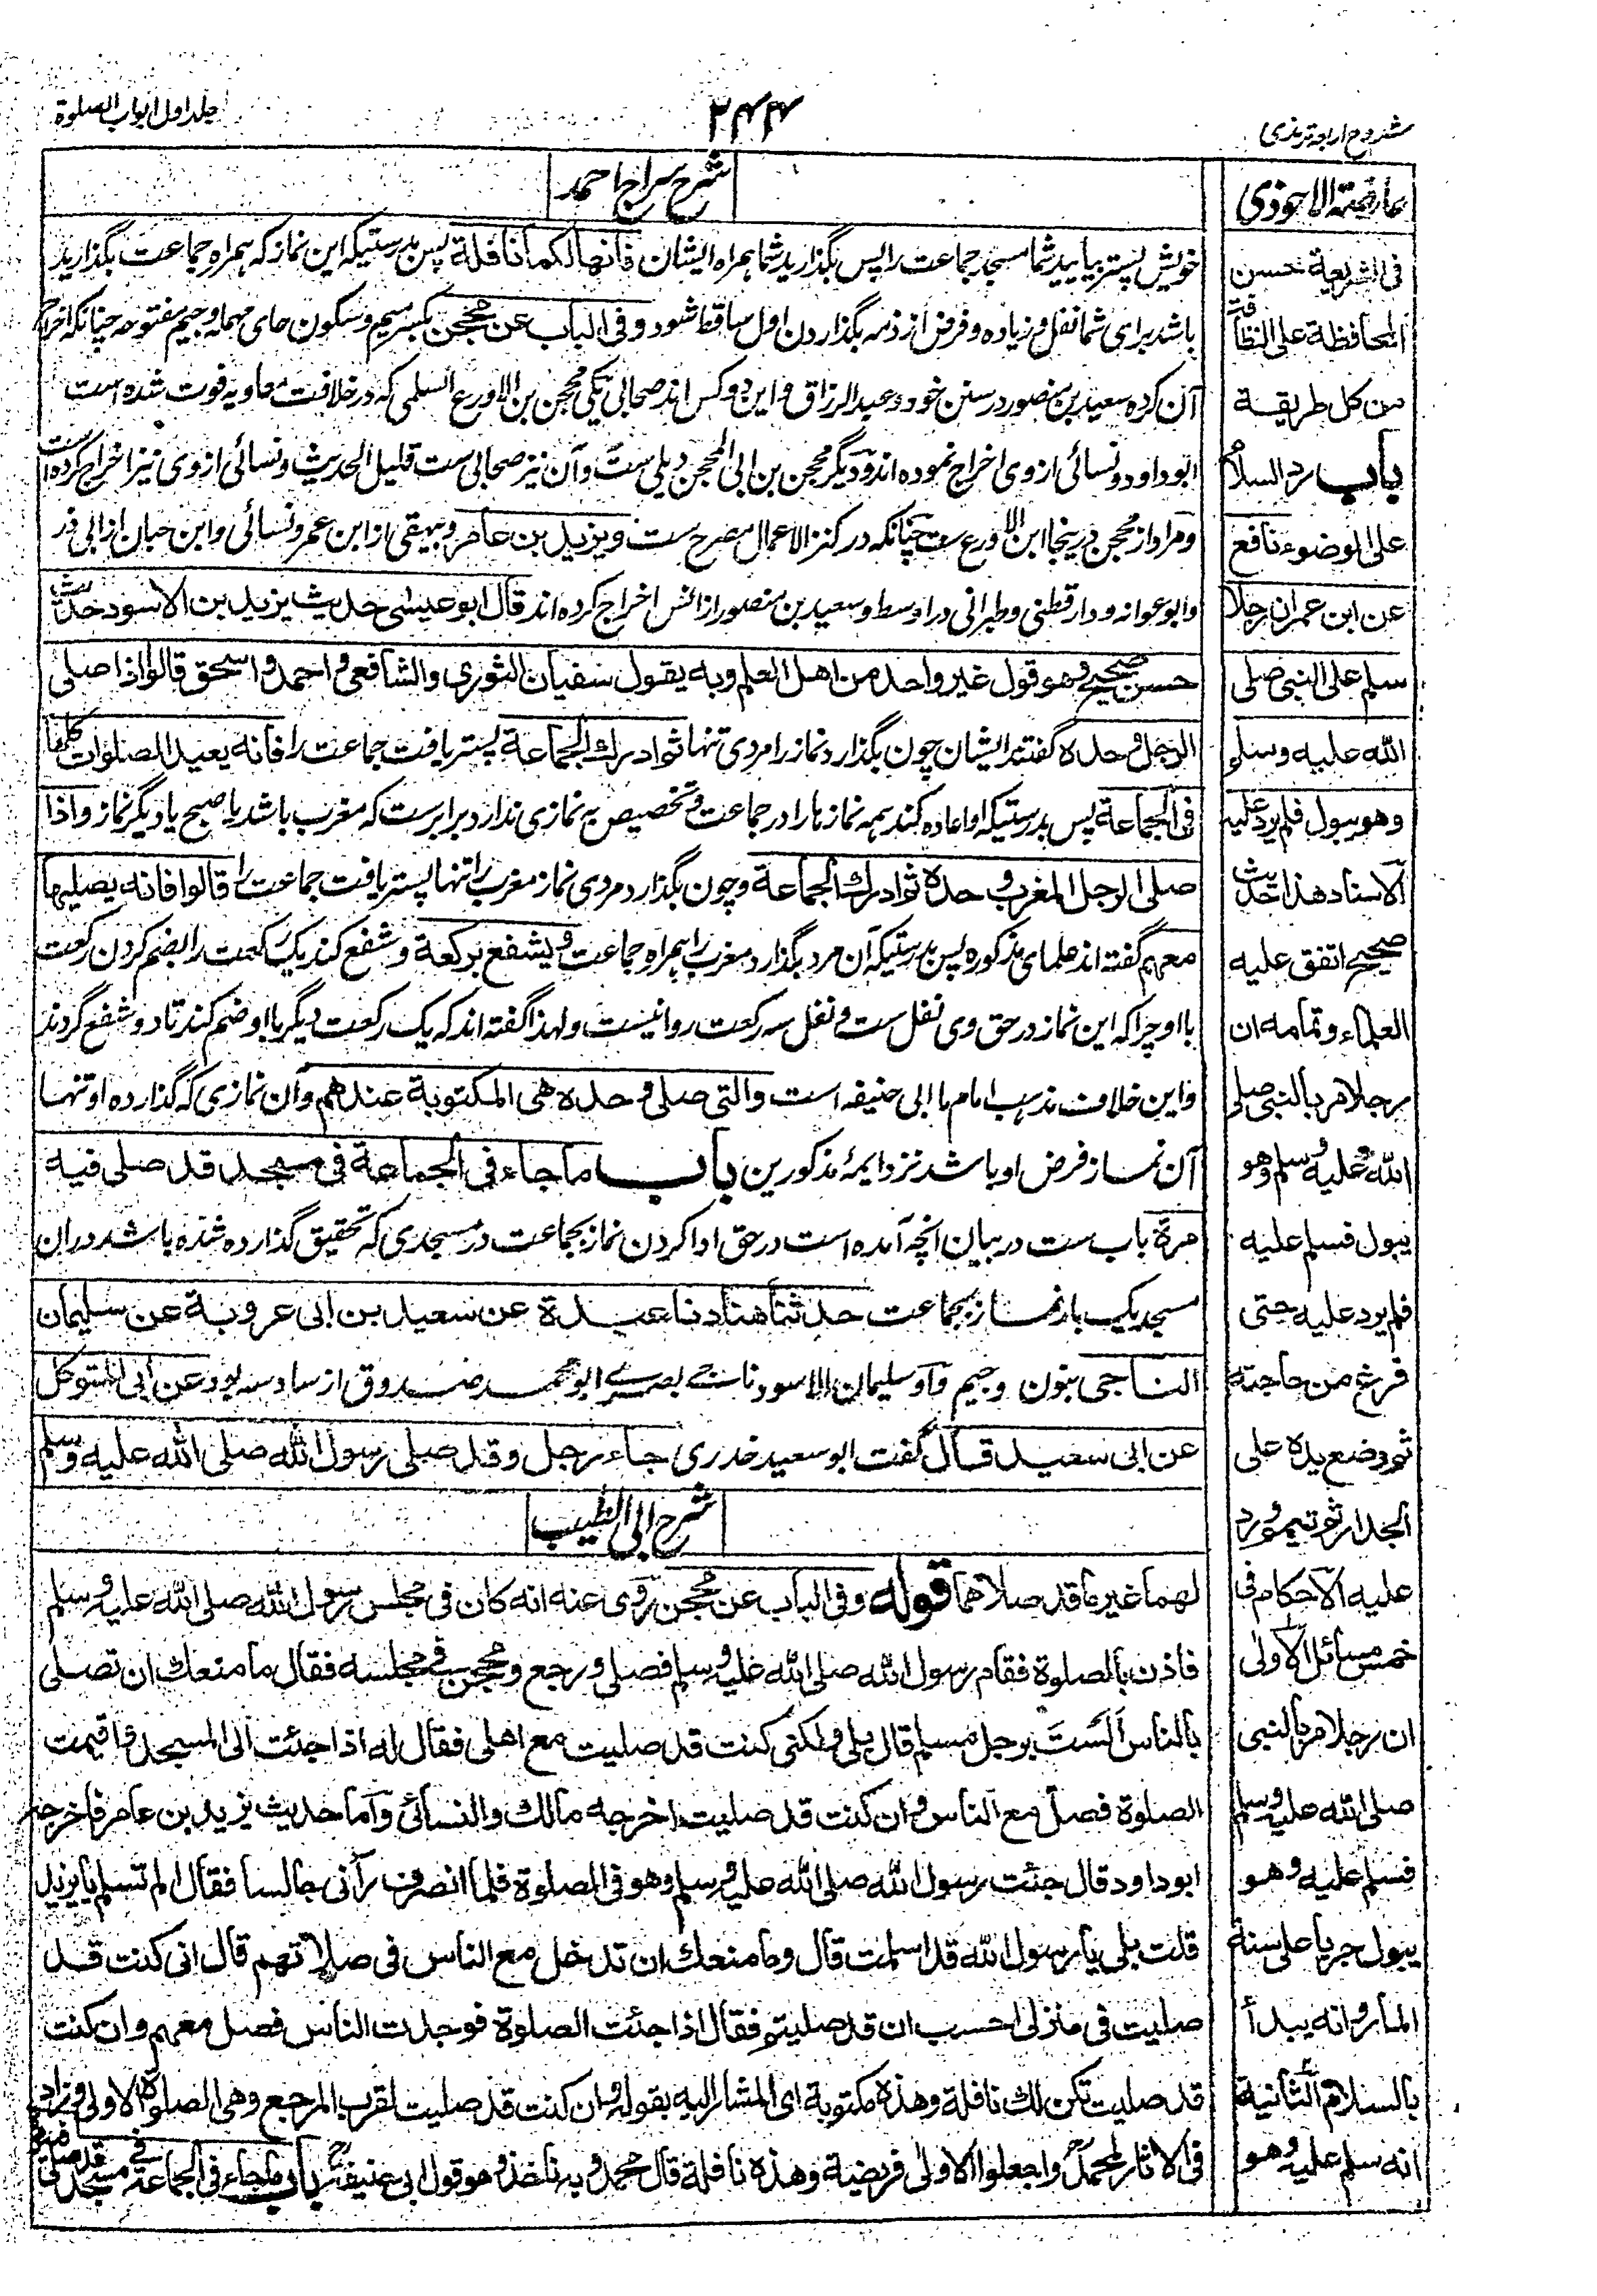 شروح اربعہ ترمذی
۲۴۴
جلد اول ابواب الصلوة
عارضة الاحوذی
فی الشریعة حسن
المحافظة علی النظافة
من کل طریقة
باب رد السلام
علی الوضوء نافع
عن ابن عمر ان رجلا
سلم علی النبی صلی
الله علیه وسلم
وهو یبول فلم یرد علیه
الاسناد هذا حدیث
صحیح اتفق علیه
العلماء وتمامه ان
رجلا مر بالنبی صلی
الله علیه وسلم وهو
یبول فسلم علیه
فلم یرد علیه حتی
فرغ من حاجته
ثم وضع یده علی
الجدار ثم تیمم ورد
علیه الاحکام فی
خمس مسائل الاولی
ان رجلا مر بالنبی
صلی الله علیه وسلم
فسلم علیه وهو
یبول جریا علی سنة
المار وانه یبدأ
بالسلام الثانیة
انه سلم علیه وهو
شرح سراج احمد
خویش پستر بیایید شما مسجد جماعت را پس بگذارید شما همراه ایشان فانها لکما نافلة پس بدرستیکه این نماز که همراه جماعت بگذارید
باشد برای شما نفل و زیاده و فرض از ذمه بگذاردن اول ساقط شود وفی الباب عن محجن بکسر میم و سکون حای مهمله و جیم مفتوحه چنانکه اخراج
آن کرده سعید بن منصور در سنن خود و عبد الرزاق و این دو کس اند صحابی یکی محجن بن الاورع السلمی که در خلافت معاویه فوت شده است
ابو داود و نسائی از وی اخراج نموده اند و دیگر محجن بن ابی المحجن دیلی ست و آن نیز صحابی ست قلیل الحدیث و نسائی از وی نیز اخراج کرده است
و مراد از محجن درینجا ابن الاورع ست چنانکه در کنز الاعمال مصرح ست ویزید بن عامر و بیهقی از ابن عمر و نسائی و ابن حبان از ابی ذر
و ابو عوانه و دارقطنی و طبرانی در اوسط و سعید بن منصور از انس اخراج کرده اند قال ابو عیسی حدیث یزید بن الاسود حدیث
حسن صحیح وهو قول غیر واحد من اهل العلم وبه یقول سفیان الثوری والشافعی واحمد واسحق قالوا اذا صلی
الرجل وحده گفتند ایشان چون بگذارد نماز را مردی تنها ثم ادرك الجماعة پستر یافت جماعت را فانه یعید الصلوات کلها
فی الجماعة پس بدرستیکه او اعاده کند همه نماز ها را در جماعت و تخصیص به نمازی ندارد برابر ست که مغرب باشد یا صبح یا دیگر نماز واذا
صلی الرجل المغرب وحده ثم ادرك الجماعة و چون بگذارد مردی نماز مغرب را تنها پستر یافت جماعت را قالوا فانه یصلیها
معهم گفته اند علمای مذکوره پس بدرستیکه آن مرد بگذارد مغرب را همراه جماعت ویشفع برکعة و شفع کند یک رکعت را بضم کردن رکعت
با او چرا که این نماز در حق وی نفل ست و نفل سه رکعت روا نیست و لهذا گفته اند که یک رکعت دیگر با او ضم کند تا دو شفع گردند
و این خلاف مذهب امام ما ابی حنیفه است والتی صلی وحده هی المکتوبة عندهم و آن نمازی که گذارده او تنها
آن نماز فرض او باشد نزد ایمۀ مذکورین باب ما جاء فی الجماعة فی مسجد قد صلی فیه
مرة باب ست در بیان انچه آمده است در حق ادا کردن نماز بجماعت در مسجدی که تحقیق گذارده شده باشد دران
مسجد یک بار نماز بجماعت حدثنا هناد نا عبدة عن سعید بن ابی عروبة عن سلیمان
الناجی بنون و جیم و او سلیمان الاسود ناجی بصری ابو محمد صدوق از سادسه بود عن ابی المتوکل
عن ابی سعید قال گفت ابو سعید خدری جاء رجل وقد صلی رسول الله صلی الله علیه وسلم
شرح ابی الطیب
لهما غیر ما قد صلاهما قوله وفی الباب عن محجن روی عنه انه کان فی مجلس رسول الله صلی الله علیه وسلم
فاذن بالصلوة فقام رسول الله صلی الله علیه وسلم فصلی ورجع ومحجن فی مجلسه فقال ما منعك ان تصلی
بالناس الست برجل مسلم قال بلی ولکنی کنت قد صلیت مع اهلی فقال له اذا جئت الی المسجد فاقیمت
الصلوة فصل مع الناس وان کنت قد صلیت اخرجه مالك والنسائی واما حدیث یزید بن عامر فاخرجه
ابو داود قال جئت رسول الله صلی الله علیه وسلم وهو فی الصلوة فلما انصرف رآنی جالسا فقال الم تسلم یا یزید
قلت بلی یا رسول الله قد اسلمت قال وما منعك ان تدخل مع الناس فی صلاتهم قال انی کنت قد
صلیت فی منزلی احسب ان قد صلیتم فقال اذا جئت الصلوة فوجدت الناس فصل معهم وان کنت
قد صلیت تکن لك نافلة وهذه مکتوبة ای المشار الیه بقوله وان کنت قد صلیت لقرب المرجع وهی الصلوة الاولی وزاد
فی الاثار لمحمد واجعلوا الاولی فریضة وهذه نافلة قال محمد وبه ناخذ وهو قول ابی حنیفة باب ما جاء فی الجماعة فی مسجد قد صلی